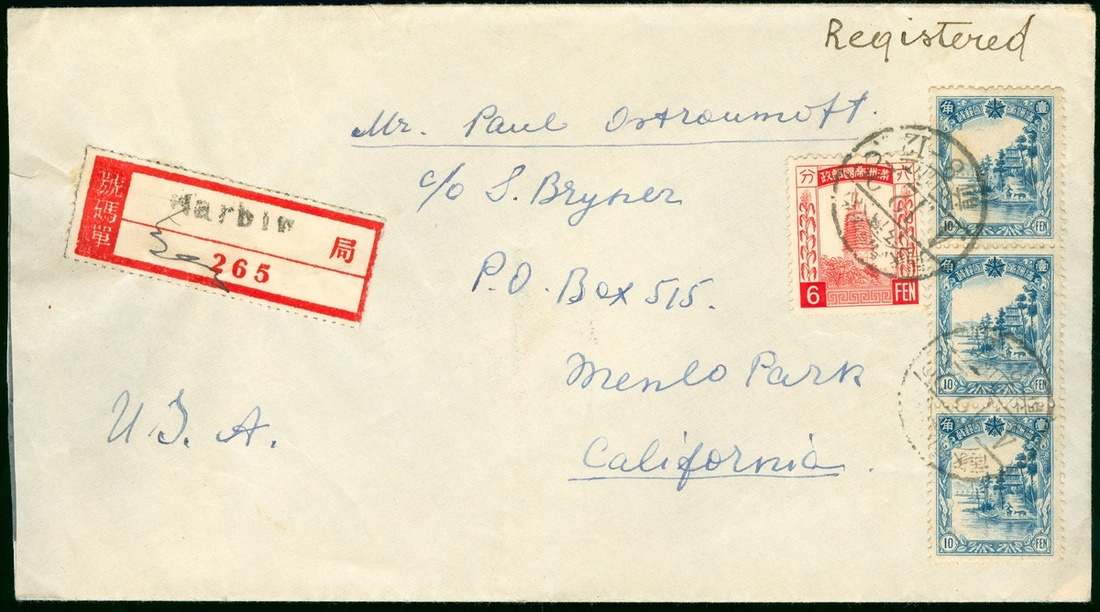 Registered
Mr. Paul Ostroumoff.
c/o S. Bryner
P.O. Box 515.
Menlo Park
California.
U.S.A.
號碼單
Harbin
局
265
角 壹
10 FEN
分 政郵國帝洲滿 六
6 FEN
角 壹
10 FEN
角 壹
10 FEN